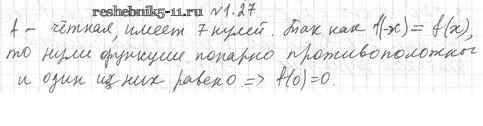 reshebnik5-11.ru №1.27
f – чётная, имеет 7 нулей. Так как f(-x) = f(x),
то нули функции попарно противоположны
и один из них равен 0 => f(0)=0.